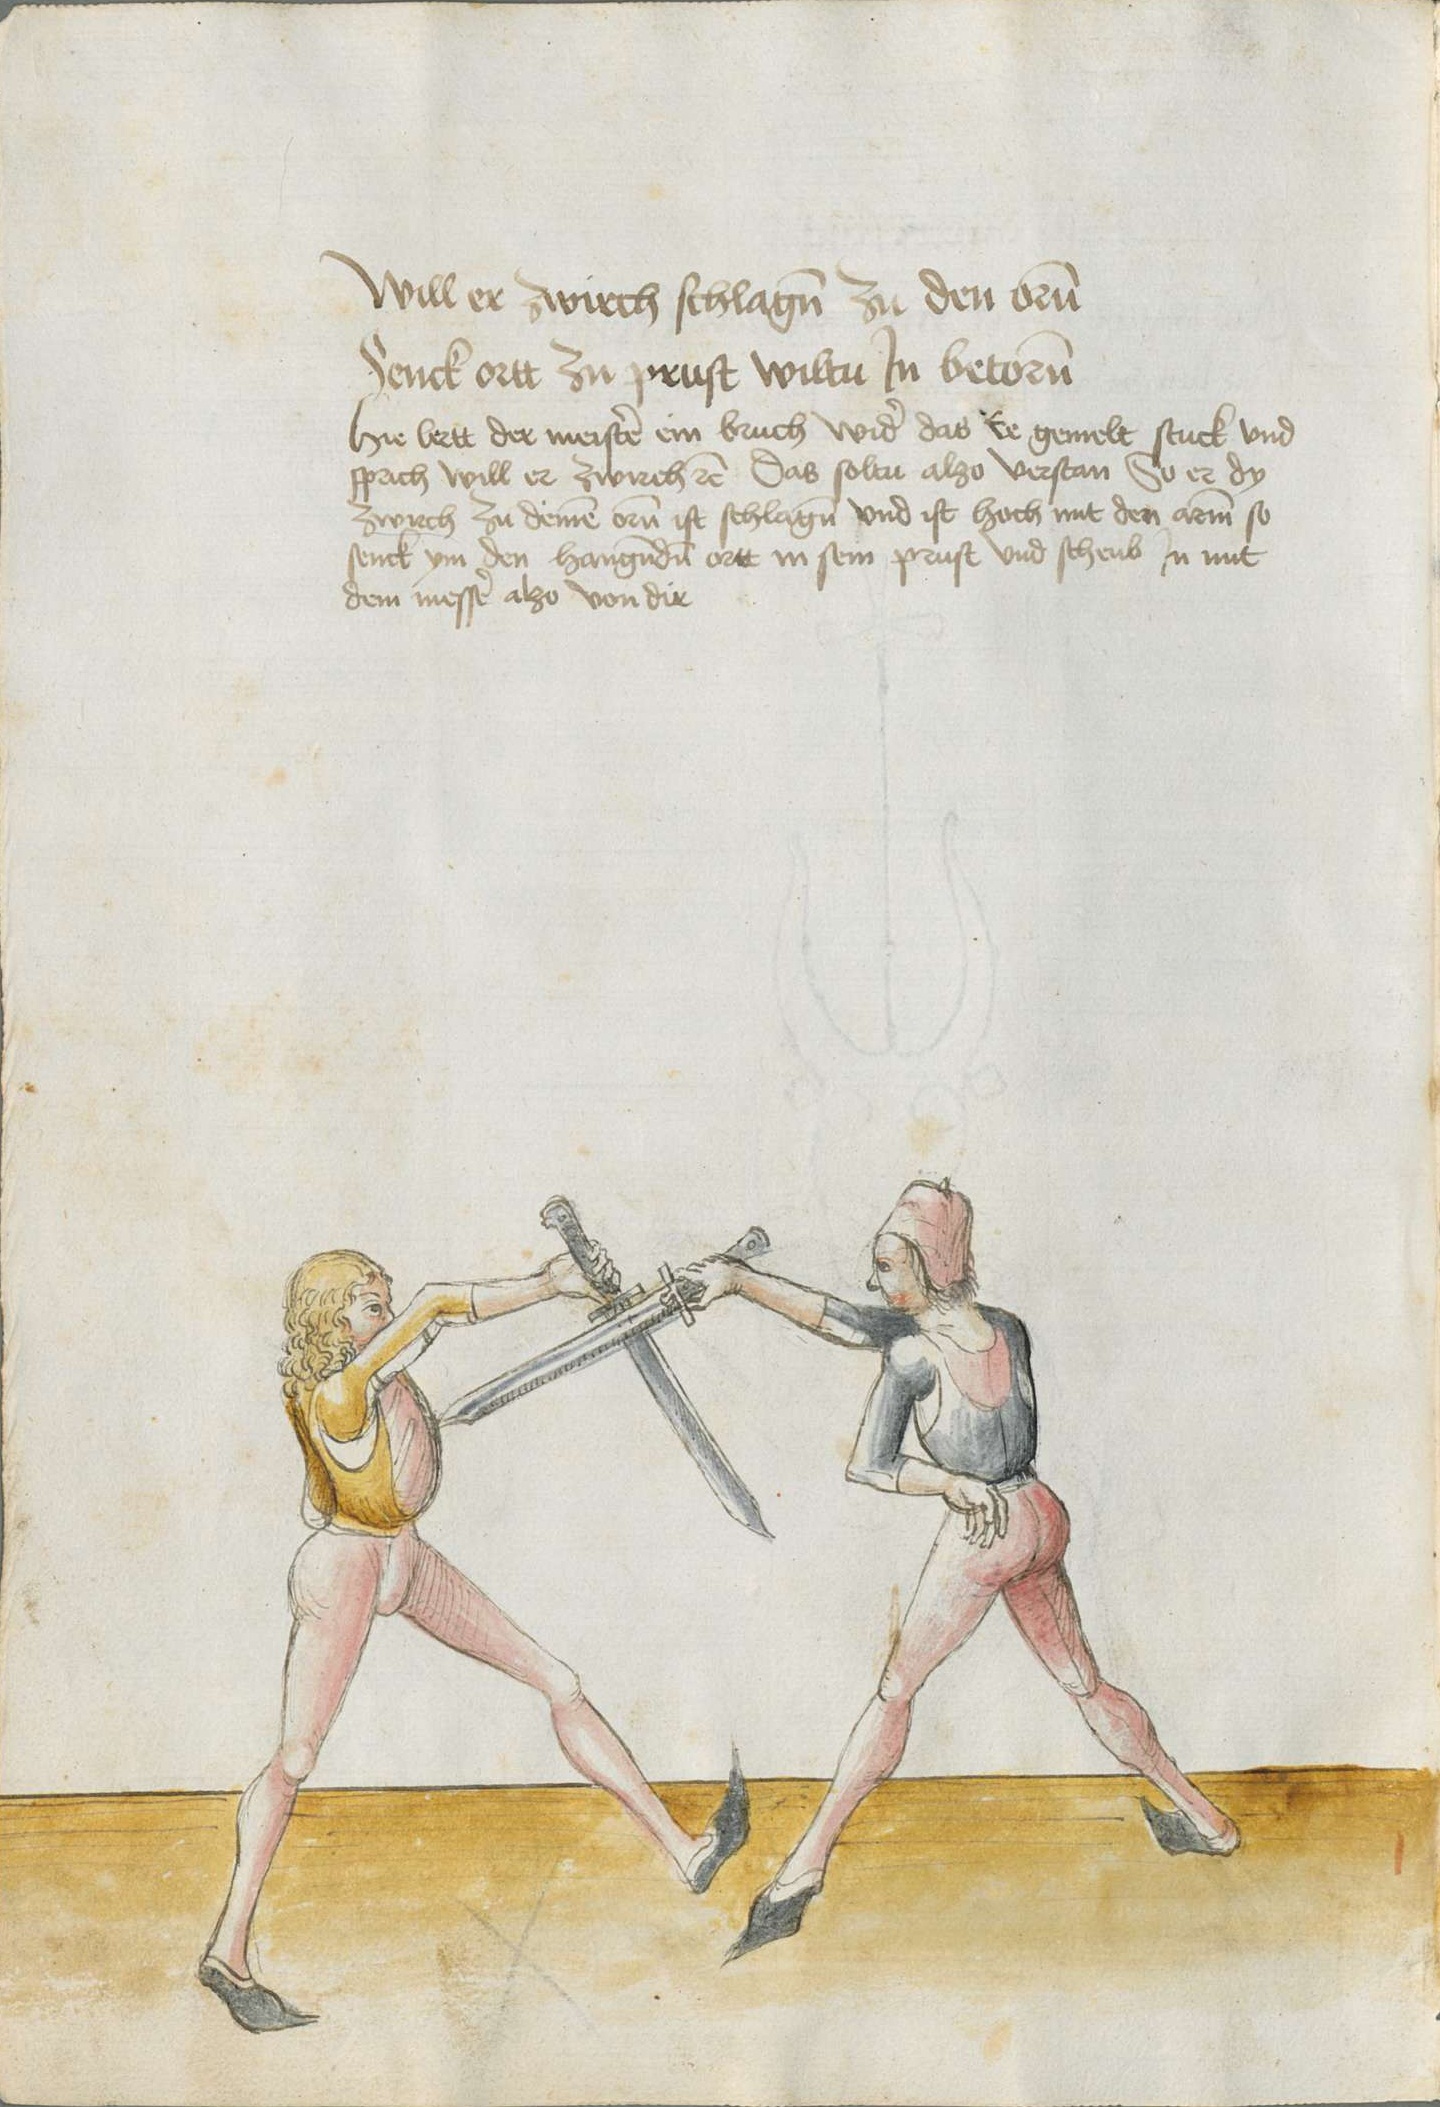 Will er zwirch schlagn̄ zu den orn̄
Senck ortt zu prust wiltu In betorn̄
Hie lertt der meistē ein bruch widˀ das Ee gemelt stuck vnd
sprich will er zwirch rē Das soltu alzo verstan So er dy
zwirch zu deinē orn̄ ist schlagn̄ vnd ist hoch mit den arm̄ so
senck ym den hangn̄dn̄ ortt in sein prust vnd scheub In mit
dem messˀ alzo von dir